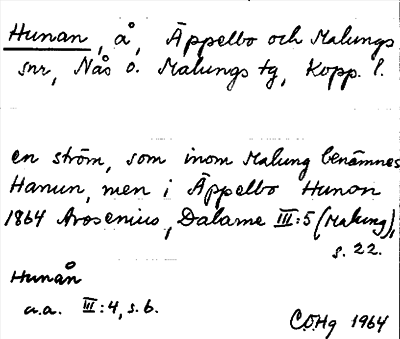 Hunan, å, Äppelbo och Malungs
snr, Nås o. Malungs tg, Kopp. l.
en ström, som inom Malung benämnes
Hanun, men i Äppelbo Hunon
1864 Arosenius, Dalarne III:5 (Malung),
s. 22.
Hunån
a.a. III:4, s. 6.
C.Ö.Hg 1964